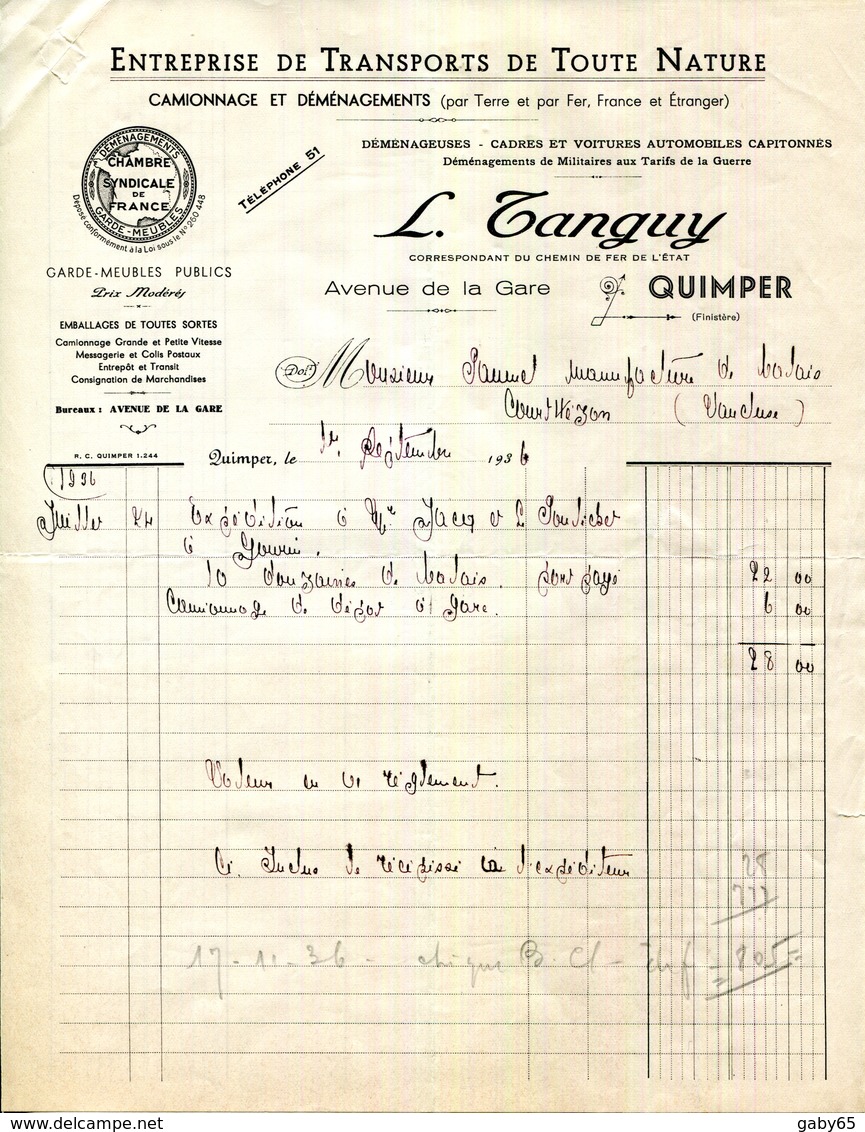 ENTREPRISE DE TRANSPORTS DE TOUTE NATURE
CAMIONNAGE ET DÉMÉNAGEMENTS (par Terre et par Fer, France et Étranger)
DÉMÉNAGEUSES - CADRES ET VOITURES AUTOMOBILES CAPITONNÉS
Déménagements de Militaires aux Tarifs de la Guerre
TÉLÉPHONE 51
DÉMÉNAGEMENTS
CHAMBRE
SYNDICALE
DE
FRANCE
GARDE-MEUBLES
Déposé conformément à la Loi sous le N° 260 448
L. Tanguy
CORRESPONDANT DU CHEMIN DE FER DE L'ÉTAT
GARDE-MEUBLES PUBLICS
Prix Modérés
Avenue de la Gare QUIMPER
(Finistère)
EMBALLAGES DE TOUTES SORTES
Camionnage Grande et Petite Vitesse
Messagerie et Colis Postaux
Entrepôt et Transit
Consignation de Marchandises
Bureaux : AVENUE DE LA GARE
R. C. QUIMPER 1.244
Doit Monsieur manufacture de balais
Courthézon (Vaucluse)
Quimper, le 1er Septembre 1936
1936
Juillet 24 Expédition à Mr Jacq et
à Gourin.
10 douzaines de balais. port payé 22 00
Camionnage de dépôt à gare. 6 00
28 00
Valeur en règlement.
Ci. Inclus le récépissé à l'expéditeur
28
777
17-11-36 - chèque B. Cl - = 805 =
gaby65